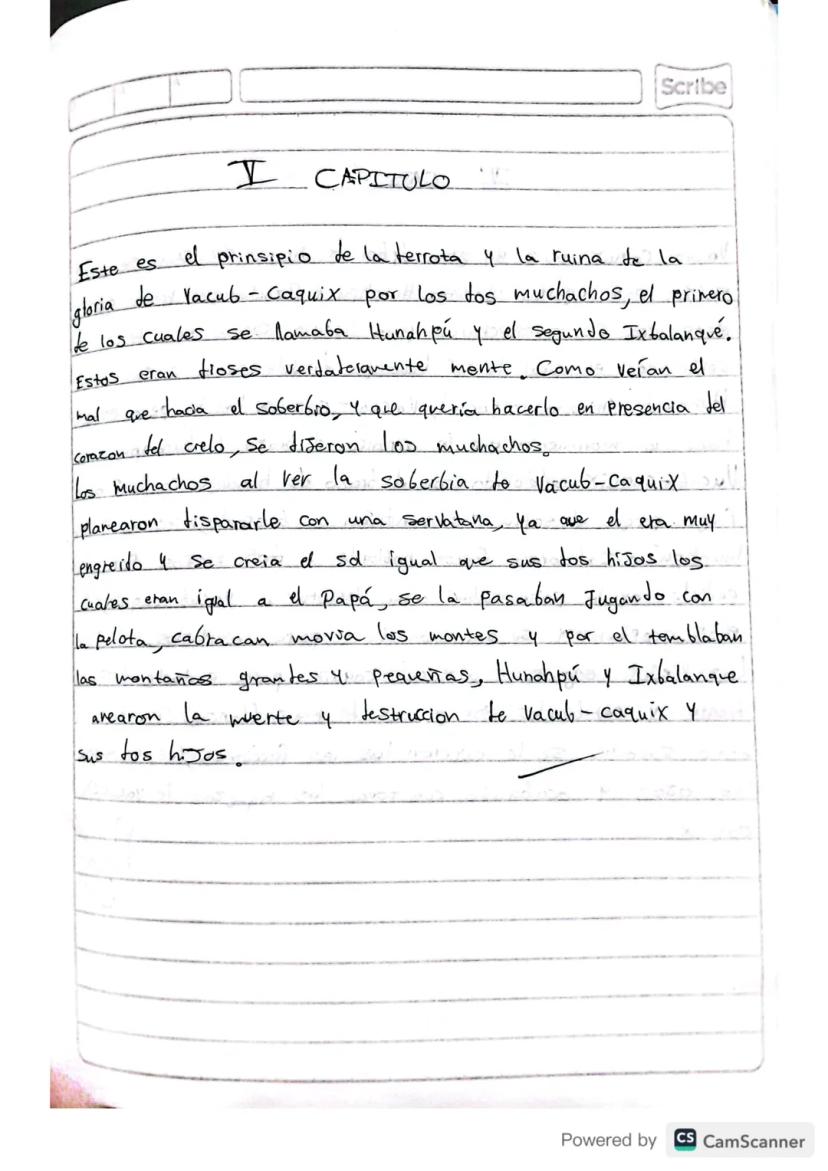 Scribe
V CAPITULO
Este es el prinsipio de la derrota y la ruina de la
gloria de Vacub-Caquix por los dos muchachos, el primero
de los cuales se llamaba Hunahpú y el segundo Ixbalanqué.
Estos eran dioses verdaderamente mente. Como veían el
mal que hacia el soberbio, y que quería hacerlo en presencia del
corazon del cielo, se dijeron los muchachos.
Los muchachos al ver la soberbia de Vacub-Caquix
planearon dispararle con una servatana, ya que el era muy
engreido y se creia el sol igual que sus dos hijos los
cuales eran igual a el Papá, se la pasaban Jugando con
la pelota, cabracan movia los montes y por el temblaban
las montañas grandes y pequeñas, Hunahpú y Ixbalanque
anearon la muerte y destruccion de Vacub-caquix y
sus dos hijos.
Powered by CS CamScanner